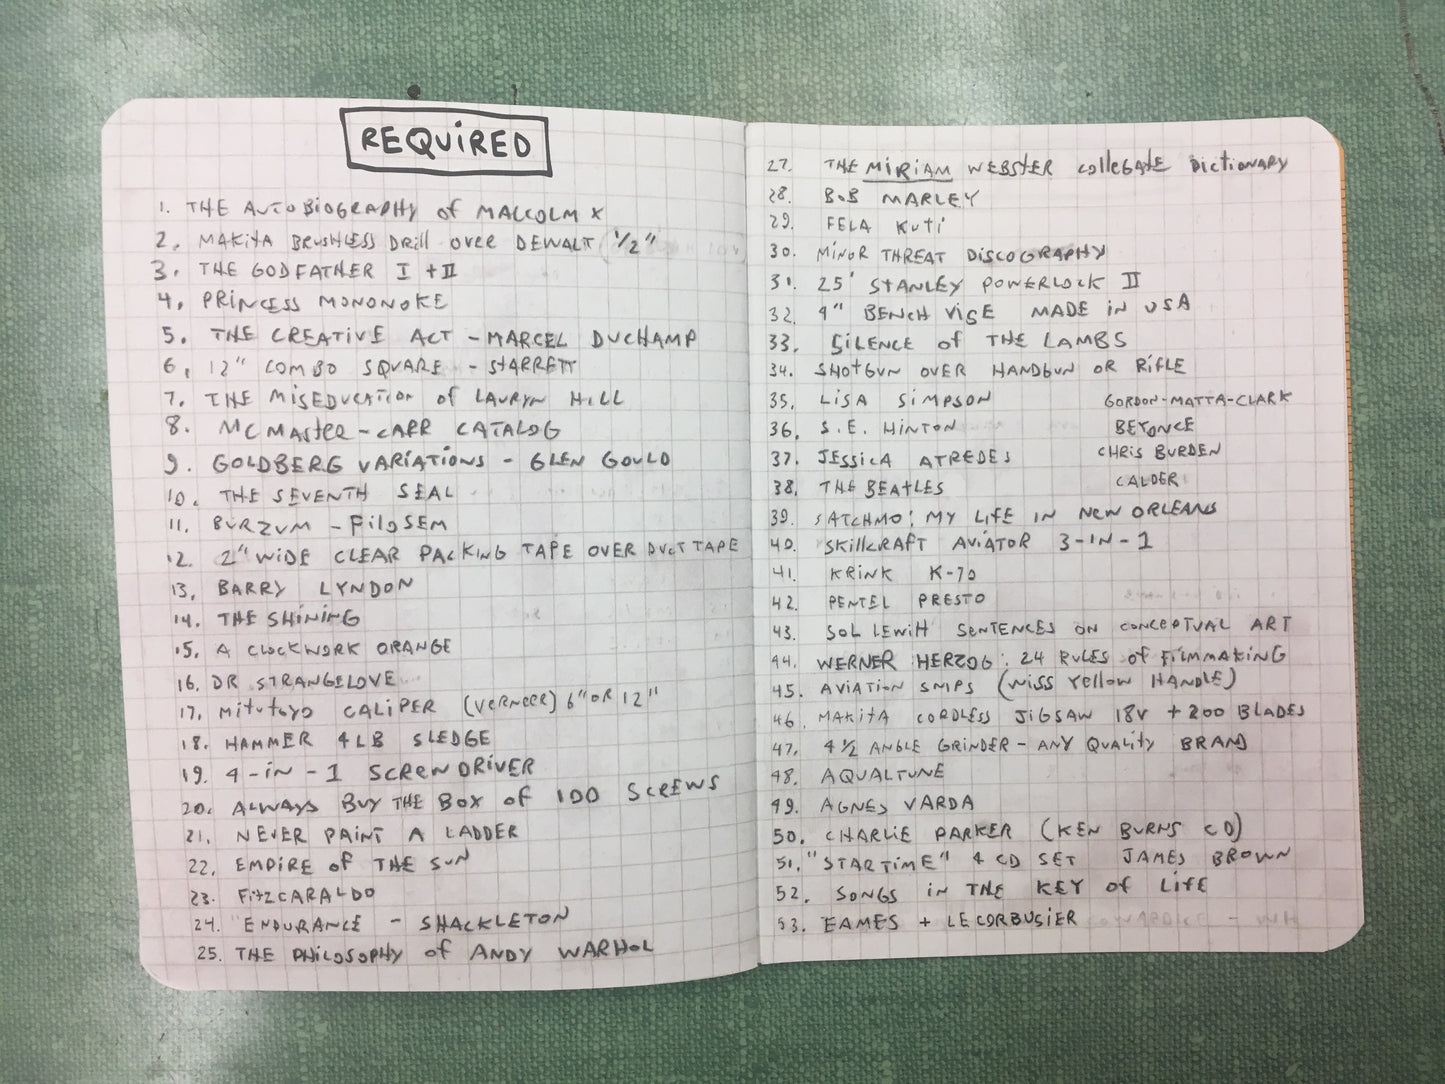 REQUIRED
1. THE AUTOBIOGRAPHY of MALCOLM X
2. MAKITA BRUSHLESS DRill over DEWALT 1/2"
3. THE GODFATHER I + II
4. PRINCESS MONONOKE
5. THE CREATIVE ACT - MARCEL DUCHAMP
6. 12" COMBO SQUARE - STARRETT
7. THE MISEDUCATION of LAURYN HILL
8. MCMASTER-CARR CATALOG
9. GOLDBERG VARIATIONS - GLEN GOULD
10. THE SEVENTH SEAL
11. BURZUM - FILOSEM
12. 2" WIDE CLEAR PACKING TAPE OVER DUCT TAPE
13. BARRY LYNDON
14. THE SHINING
15. A CLOCKWORK ORANGE
16. DR STRANGELOVE
17. Mitutoyo CALIPER (VERNEER) 6" OR 12"
18. HAMMER 4LB SLEDGE
19. 4-IN-1 SCREWDRIVER
20. ALWAYS BUY THE BOX of 100 SCREWS
21. NEVER PAINT A LADDER
22. EMPIRE of THE SUN
23. FITZCARALDO
24. ENDURANCE - SHACKLETON
25. THE PHILOSOPHY of ANDY WARHOL
27. THE MIRIAM WEBSTER collEGATE Dictionary
28. BOB MARLEY
29. FELA KUTI
30. MINOR THREAT DISCOGRAPHY
31. 25' STANLEY POWERLOCK II
32. 4" BENCH VISE MADE IN USA
33. SILENCE of THE LAMBS
34. SHOTGUN OVER HANDGUN OR RIFLE
35. LISA SIMPSON GORDON-MATTA-CLARK
36. S.E. HINTON BEYONCE
37. JESSICA ATREDES CHRIS BURDEN
38. THE BEATLES CALDER
39. SATCHMO: MY LIFE IN NEW ORLEANS
40. SKILLCRAFT AVIATOR 3-IN-1
41. KRINK K-70
42. PENTEL PRESTO
43. SOL LEWIH SENTENCES ON CONCEPTUAL ART
44. WERNER HERZOG: 24 RULES of FILMMAKING
45. AVIATION SNIPS (WISS Yellow HANDLE)
46. MAKITA CORDLESS JIGSAW 18V + 200 BLADES
47. 4 1/2 ANGLE GRINDER - ANY QUALITY BRAND
48. AQUALTUNE
49. AGNES VARDA
50. CHARLIE PARKER (KEN BURNS CD)
51. "STARTIME" 4 CD SET JAMES BROWN
52. SONGS IN THE KEY of LIFE
53. EAMES + LE CORBUSIER